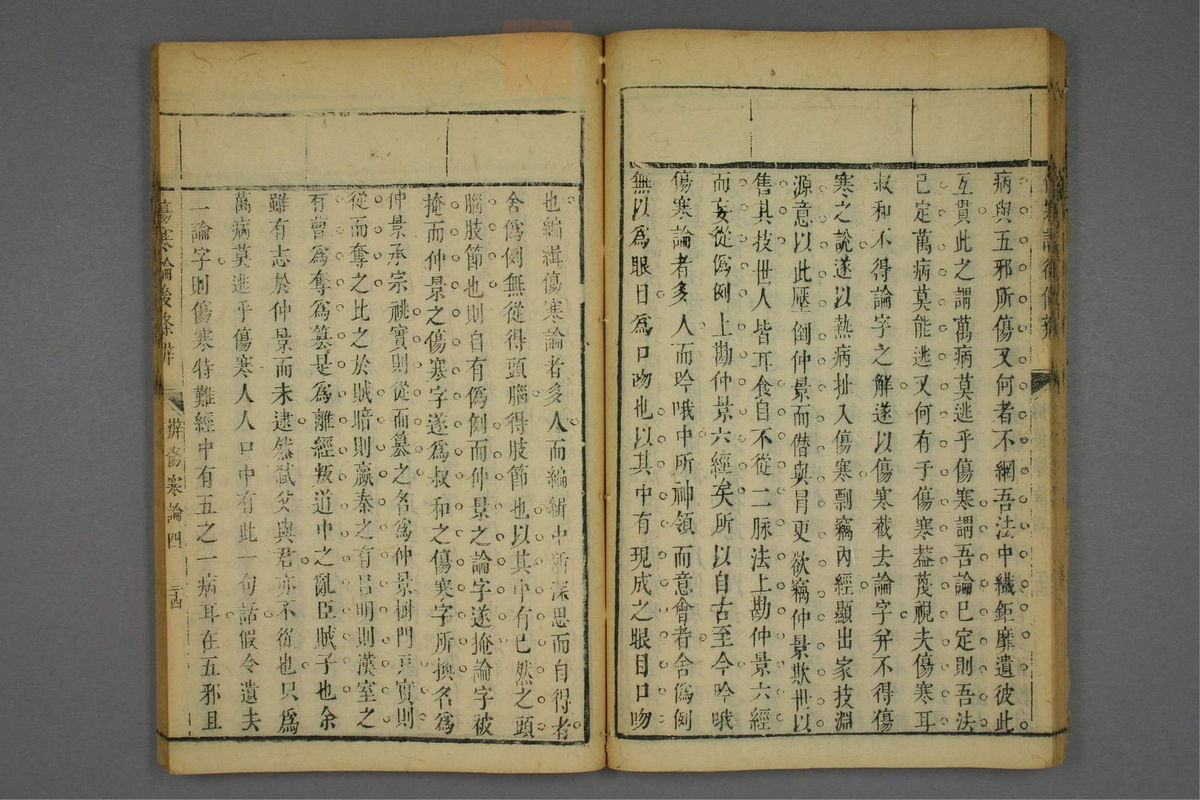 病與五邪所傷又何者不網吾法中纎鉅靡遺彼此
互貫此之謂萬病莫逃乎傷寒謂吾論已定則吾法
已定萬病莫能逃又何有于傷寒葢蔑視夫傷寒耳
叔和不得論字之解遂以傷寒截去論字弁不得傷
寒之說遂以熱病扯入傷寒剽竊內經顯出家技淵
源意以此壓倒仲景而僣與冐更欲竊仲景欺世以
售其技世人皆耳食自不從二脉法上勘仲景六經
而妄從僞例上勘仲景六經矣所以自古至今吟哦
傷寒論者多人而吟哦中所神領而意會者舍僞例
無以爲眼目爲口吻也以其中有現成之眼目口吻
也編緝傷寒論者多人而編緝中所深思而自得者
舍僞例無從得頭腦得肢節也以其中有已然之頭
腦肢節也則自有僞例而仲景之論字遂掩論字被
掩而仲景之傷寒字遂爲叔和之傷寒字所換名爲
仲景承宗祧實則從而簒之名爲仲景樹門戶實則
從而奪之比之於賊暗則嬴秦之有呂明則漢室之
有曹爲奪爲簒是爲離經叛道中之亂臣賊子也余
雖有志於仲景而未逮然弑父與君亦不從也只爲
萬病莫逃乎傷寒人人口中有此一句話假令遺夫
一論字則傷寒特難經中有五之一病耳在五邪且
傷寒論後條辨
辨傷寒論四
三十四